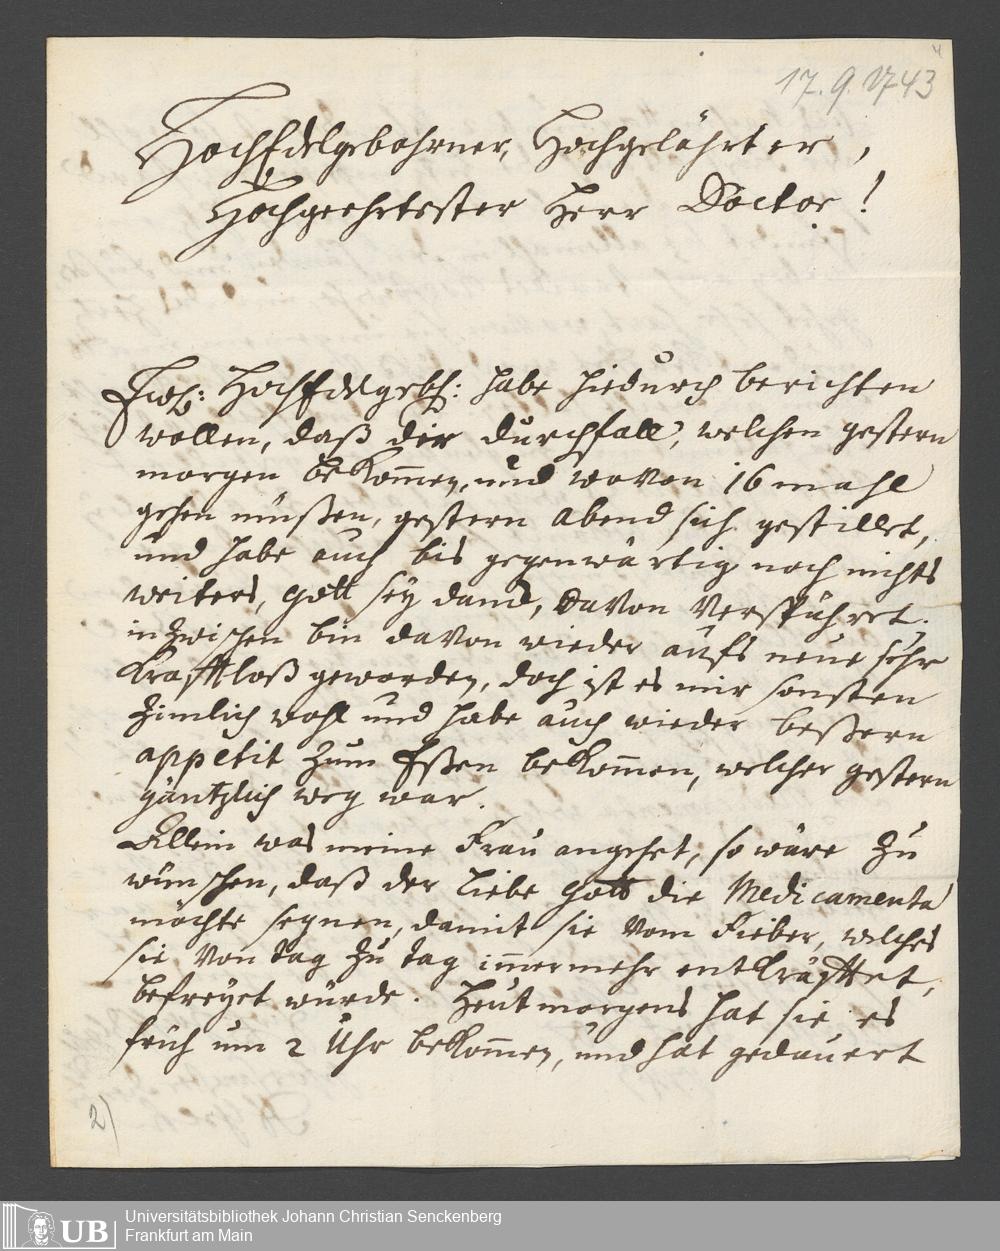 17.9.1743
HochEdelgebohrner, Hochgelährter,
Hochgeehrtester Herr Doctor!
Ew: HochEdelgeb: habe hiedurch berichten
wollen, daß der durchfall, welchen gestern
morgen bekom̄en, und wovon 16 mahl
gehen müßen, gestern abend sich gestillet,
und habe auch bis gegenwärtig noch nichts
weiters, Gott sey danck, davon verspühret.
inzwischen bin davon wieder aufs neue sehr
krafftloß geworden, doch ist es mir sonsten
zimlich wohl und habe auch wieder beßern
appetit zum Eßen bekom̄en, welcher gestern
gäntzlich weg war.
Allein was meine Frau angehet, so wäre zu
wünschen, daß der liebe Gott die Medicamenta
möchte segnen, damit sie vom Fieber, welches
sie von tag zu tag im̄ermehr entkräfftet,
befreyet würde. Heut morgens hat sie es
früh um 2 Uhr bekom̄en, und hat gedauert
2)
UB
Universitätsbibliothek Johann Christian Senckenberg
Frankfurt am Main